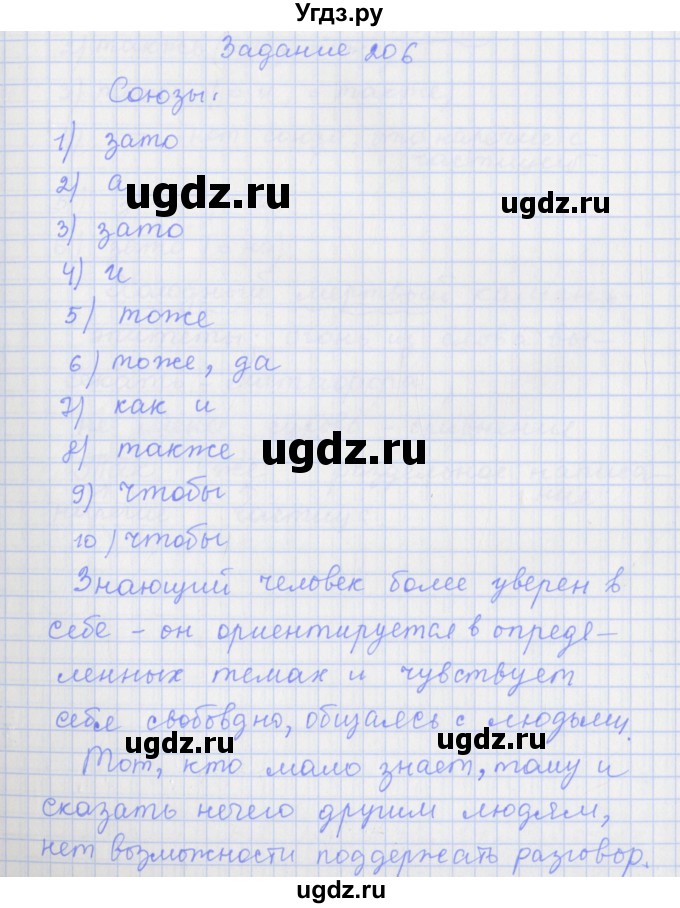 Угдз.ру
Задание 206
Союзы:
1) зато
2) а
ugdz.ru
ugdz.ru
3) зато
4) и
5) тоже
6) тоже, да
7) как и
8) также
ugdz.ru
9) чтобы
10) чтобы
Знающий человек более уверен в
себе – он ориентируется в опреде–
ленных темах и чувствует
себя свобовдно, общаясь с людьми.
ugdz.ru
ugdz.ru
Тот, кто мало знает, тому и
сказать нечего другим людям,
нет возможности поддержать разговор.
ugdz.ru